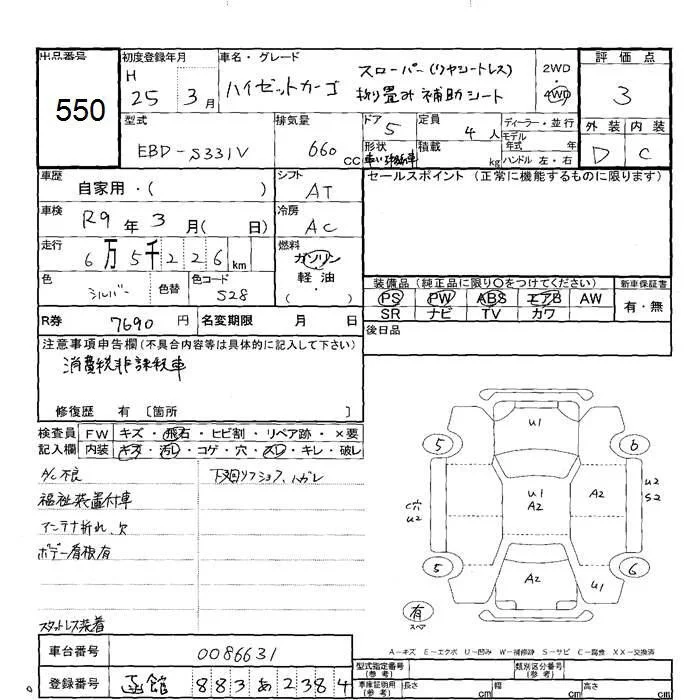 出品番号 初度登録年月 車名・グレード 評価点
550
H 25 3月
ハイゼットカーゴ スローパー(リヤシートレス)
折り畳み補助シート
2WD
・
4WD
3
型式 排気量 ドア 定員 ディーラー・並行 外装 内装
EBD-S331V 660 CC 5 4人
モデル
年式 年
形状 積載 kg ハンドル 左・右
D C
車歴 シフト セールスポイント (正常に機能するものに限ります)
自家用・( ) AT
車検 冷房
R9年3月( 日) AC
走行 燃料
6万5千226 km ガソリン
軽油
( ・ )
色 色替 色コード
シルバー S28
装備品 (純正品に限り○をつけてください) 新車保証書
PS PW ABS エアB AW 有・無
SR ナビ TV カワ
R券 7690円 名変期限 月 日
後日品
注意事項申告欄 (不具合内容等は具体的に記入して下さい)
消費税非課税車
修復歴 有 〔箇所 〕
検査員 FW キズ・飛石・ヒビ割・リペア跡・×要
記入欄 内装 キズ・汚レ・コゲ・穴・スレ・キレ・破レ
A/C不良
福祉装置付車
アンテナ折れ、欠
ボデー看板有
スタットレス装着
U1
5 6
U1
A2
A2
U2
S2
C穴
U2
5 6
A2
U1
有
スペア
A-キズ E-エクボ U-凹み W-補修跡 S-サビ C-腐食 XX-交換済
車台番号 0086631
登録番号 函館 883 あ 2384
型式指定番号
(参考)
類別区分番号
(参考)
車庫証明用
(参考)
長さ cm 幅 cm 高さ cm